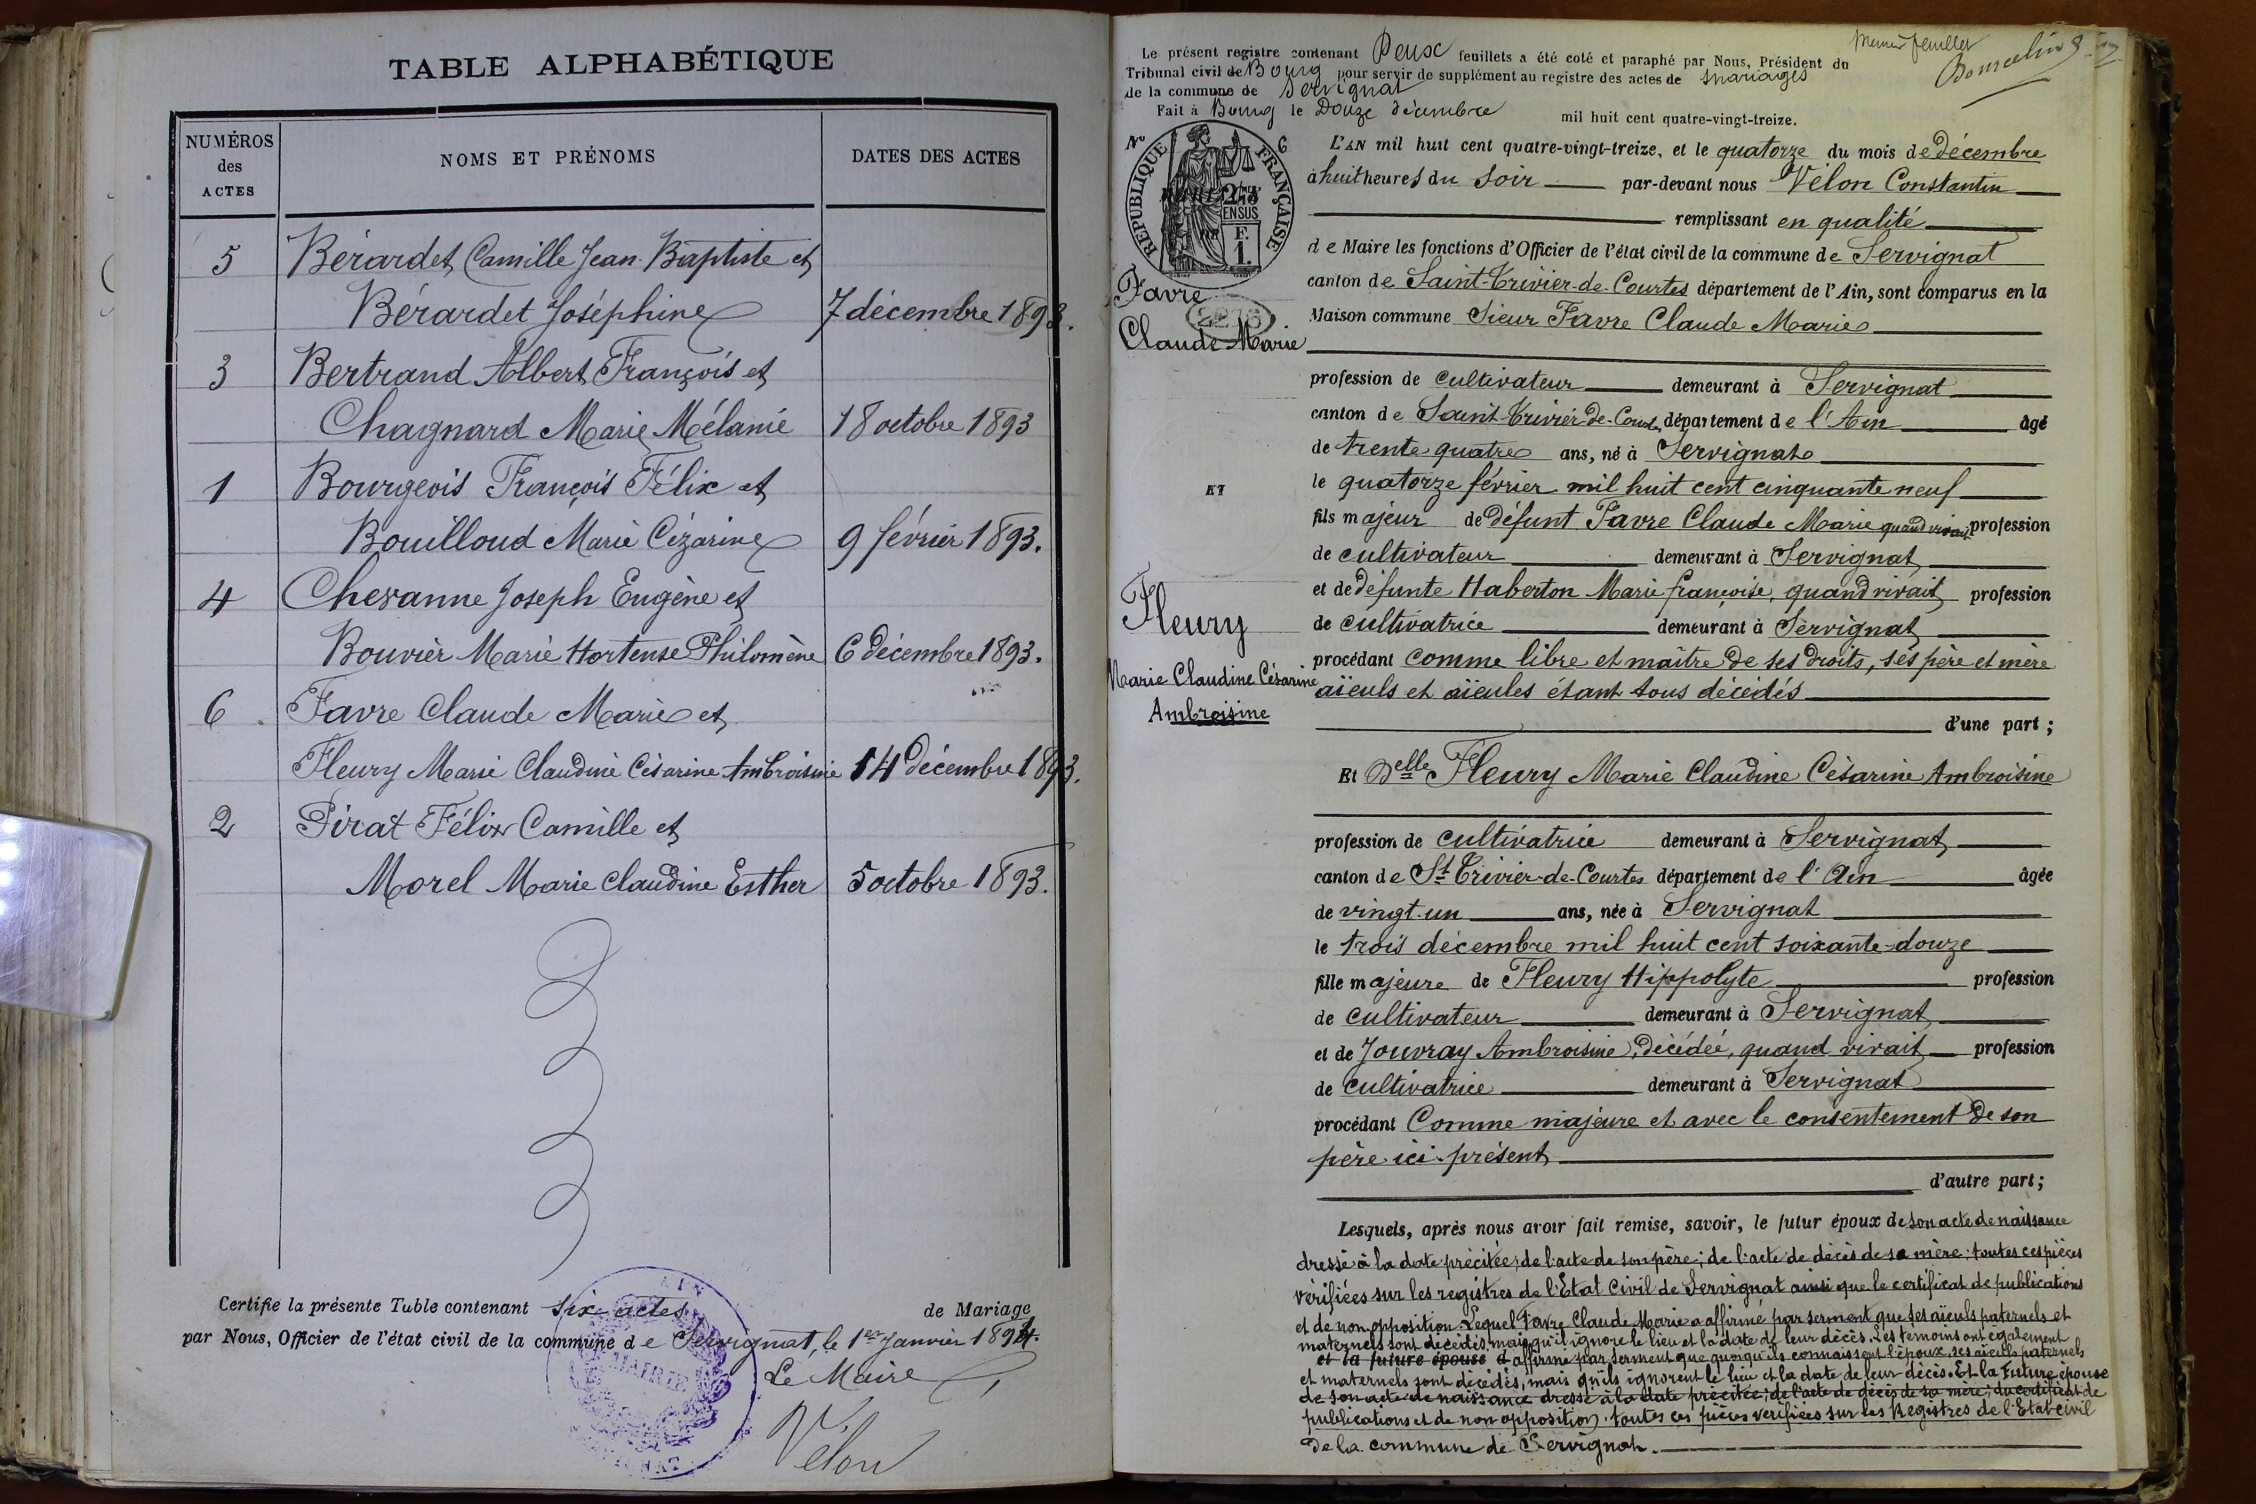 TABLE ALPHABÉTIQUE
NUMÉROS des ACTES
NOMS ET PRÉNOMS
DATES DES ACTES
5 Bérardet Camille Jean-Baptiste et
Bérardet Joséphine 7 décembre 1893.
3 Bertrand Albert François et
Chagnard Marie Mélanie 18 octobre 1893
1 Bourgeois François Félix et
Bouilloud Marie Cézarine 9 février 1893.
4 Chevanne Joseph Eugène et
Bouvier Marie Hortense Philomène 6 décembre 1893.
6 Favre Claude Marie et
Fleury Marie Claudine Césarine Ambroisine 14 décembre 1893.
2 Pirat Félix Camille et
Morel Marie Claudine Esther 5 octobre 1893.
Certifie la présente Table contenant six actes de Mariage
par Nous, Officier de l'état civil de la commune de Servignat, le 1er Janvier 1894.
Le Maire
Vélon
MAIRIE
AIN
Le présent registre contenant Deux feuillets a été coté et paraphé par Nous, Président du
Tribunal civil de Bourg pour servir de supplément au registre des actes de mariages
de la commune de Servignat
Fait à Bourg le Douze décembre mil huit cent quatre-vingt-treize.
feuillet
No 6
RÉPUBLIQUE FRANÇAISE
Favre
2276
Claude Marie
Fleury
Marie Claudine Césarine
Ambroisine
L'AN mil huit cent quatre-vingt-treize, et le quatorze du mois de décembre
à huit heures du soir par-devant nous Vélon Constantin
remplissant en qualité
de Maire les fonctions d'Officier de l'état civil de la commune de Servignat
canton de Saint-Trivier-de-Courtes département de l'Ain, sont comparus en la
Maison commune Sieur Favre Claude Marie
profession de cultivateur demeurant à Servignat
canton de Saint-Trivier-de-Courtes département de l'Ain âgé
de trente quatre ans, né à Servignat
le quatorze février mil huit cent cinquante neuf
fils majeur de défunt Favre Claude Marie quand vivait profession
de cultivateur demeurant à Servignat
et de défunte Haberton Marie françoise, quand vivait profession
de cultivatrice demeurant à Servignat
procédant comme libre et maître de ses droits, ses père et mère
aïeuls et aïeules étant tous décédés
d'une part ;
Et Delle Fleury Marie Claudine Césarine Ambroisine
profession de cultivatrice demeurant à Servignat
canton de St Trivier-de-Courtes département de l'Ain âgée
de vingt-un ans, née à Servignat
le trois décembre mil huit cent soixante-douze
fille majeure de Fleury Hippolyte profession
de cultivateur demeurant à Servignat
et de Jouvray Ambroisine, décédée, quand vivait profession
de cultivatrice demeurant à Servignat
procédant Comme majeure et avec le consentement de son
père ici présent
d'autre part ;
Lesquels, après nous avoir fait remise, savoir, le futur époux de son acte de naissance
dressé à la date précitée ; de l'acte de son père ; de l'acte de décès de sa mère ; toutes ces pièces
vérifiées sur les registres de l'Etat Civil de Servignat ainsi que le certificat de publications
et de non opposition. Lequel Favre Claude Marie a affirmé par serment que ses aïeuls paternels et
maternels sont décédés, mais qu'il ignore le lieu et la date de leur décès. Les témoins ont également
et la future épouse d affirmé par serment que quoiqu'ils connaissent l'époux, ses aïeuls paternels
et maternels sont décédés, mais qu'ils ignorent le lieu et la date de leur décès. Et la Future épouse
de son acte de naissance dressé à la date précitée ; de l'acte de décès de sa mère ; du certificat de
publications et de non opposition. toutes ces pièces vérifiées sur les Registres de l'Etat civil
de la commune de Servignat.